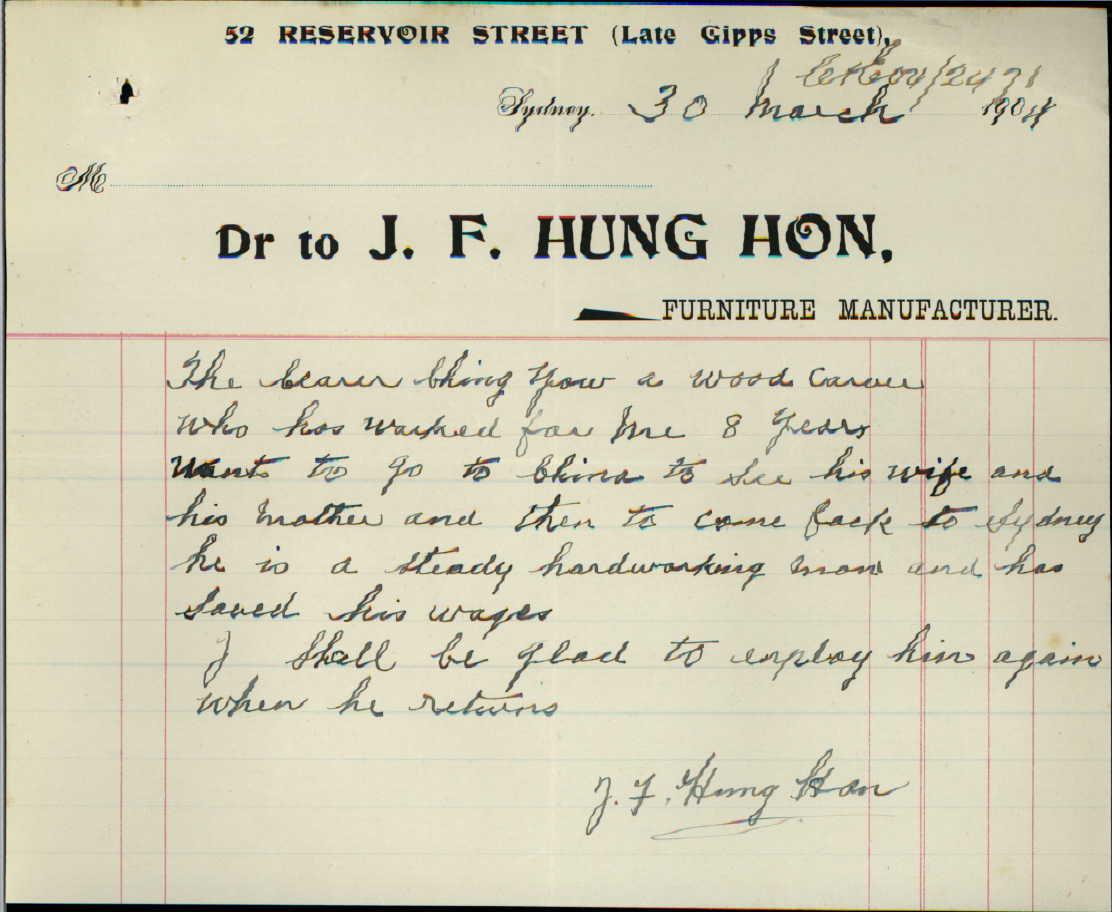 52 RESERVOIR STREET (Late Gipps Street),
Sydney. 30 March 1904
M
Dr to J. F. HUNG HON,
FURNITURE MANUFACTURER.
The bearer Ching Yow a wood Carver
who has worked for Me 8 Years
Want to go to China to See his wife and
his Mother and then to come back to Sydney
he is a steady hardworking man and has
Saved his wages
I Shall be glad to employ him again
When he returns
J. F. Hung Hon